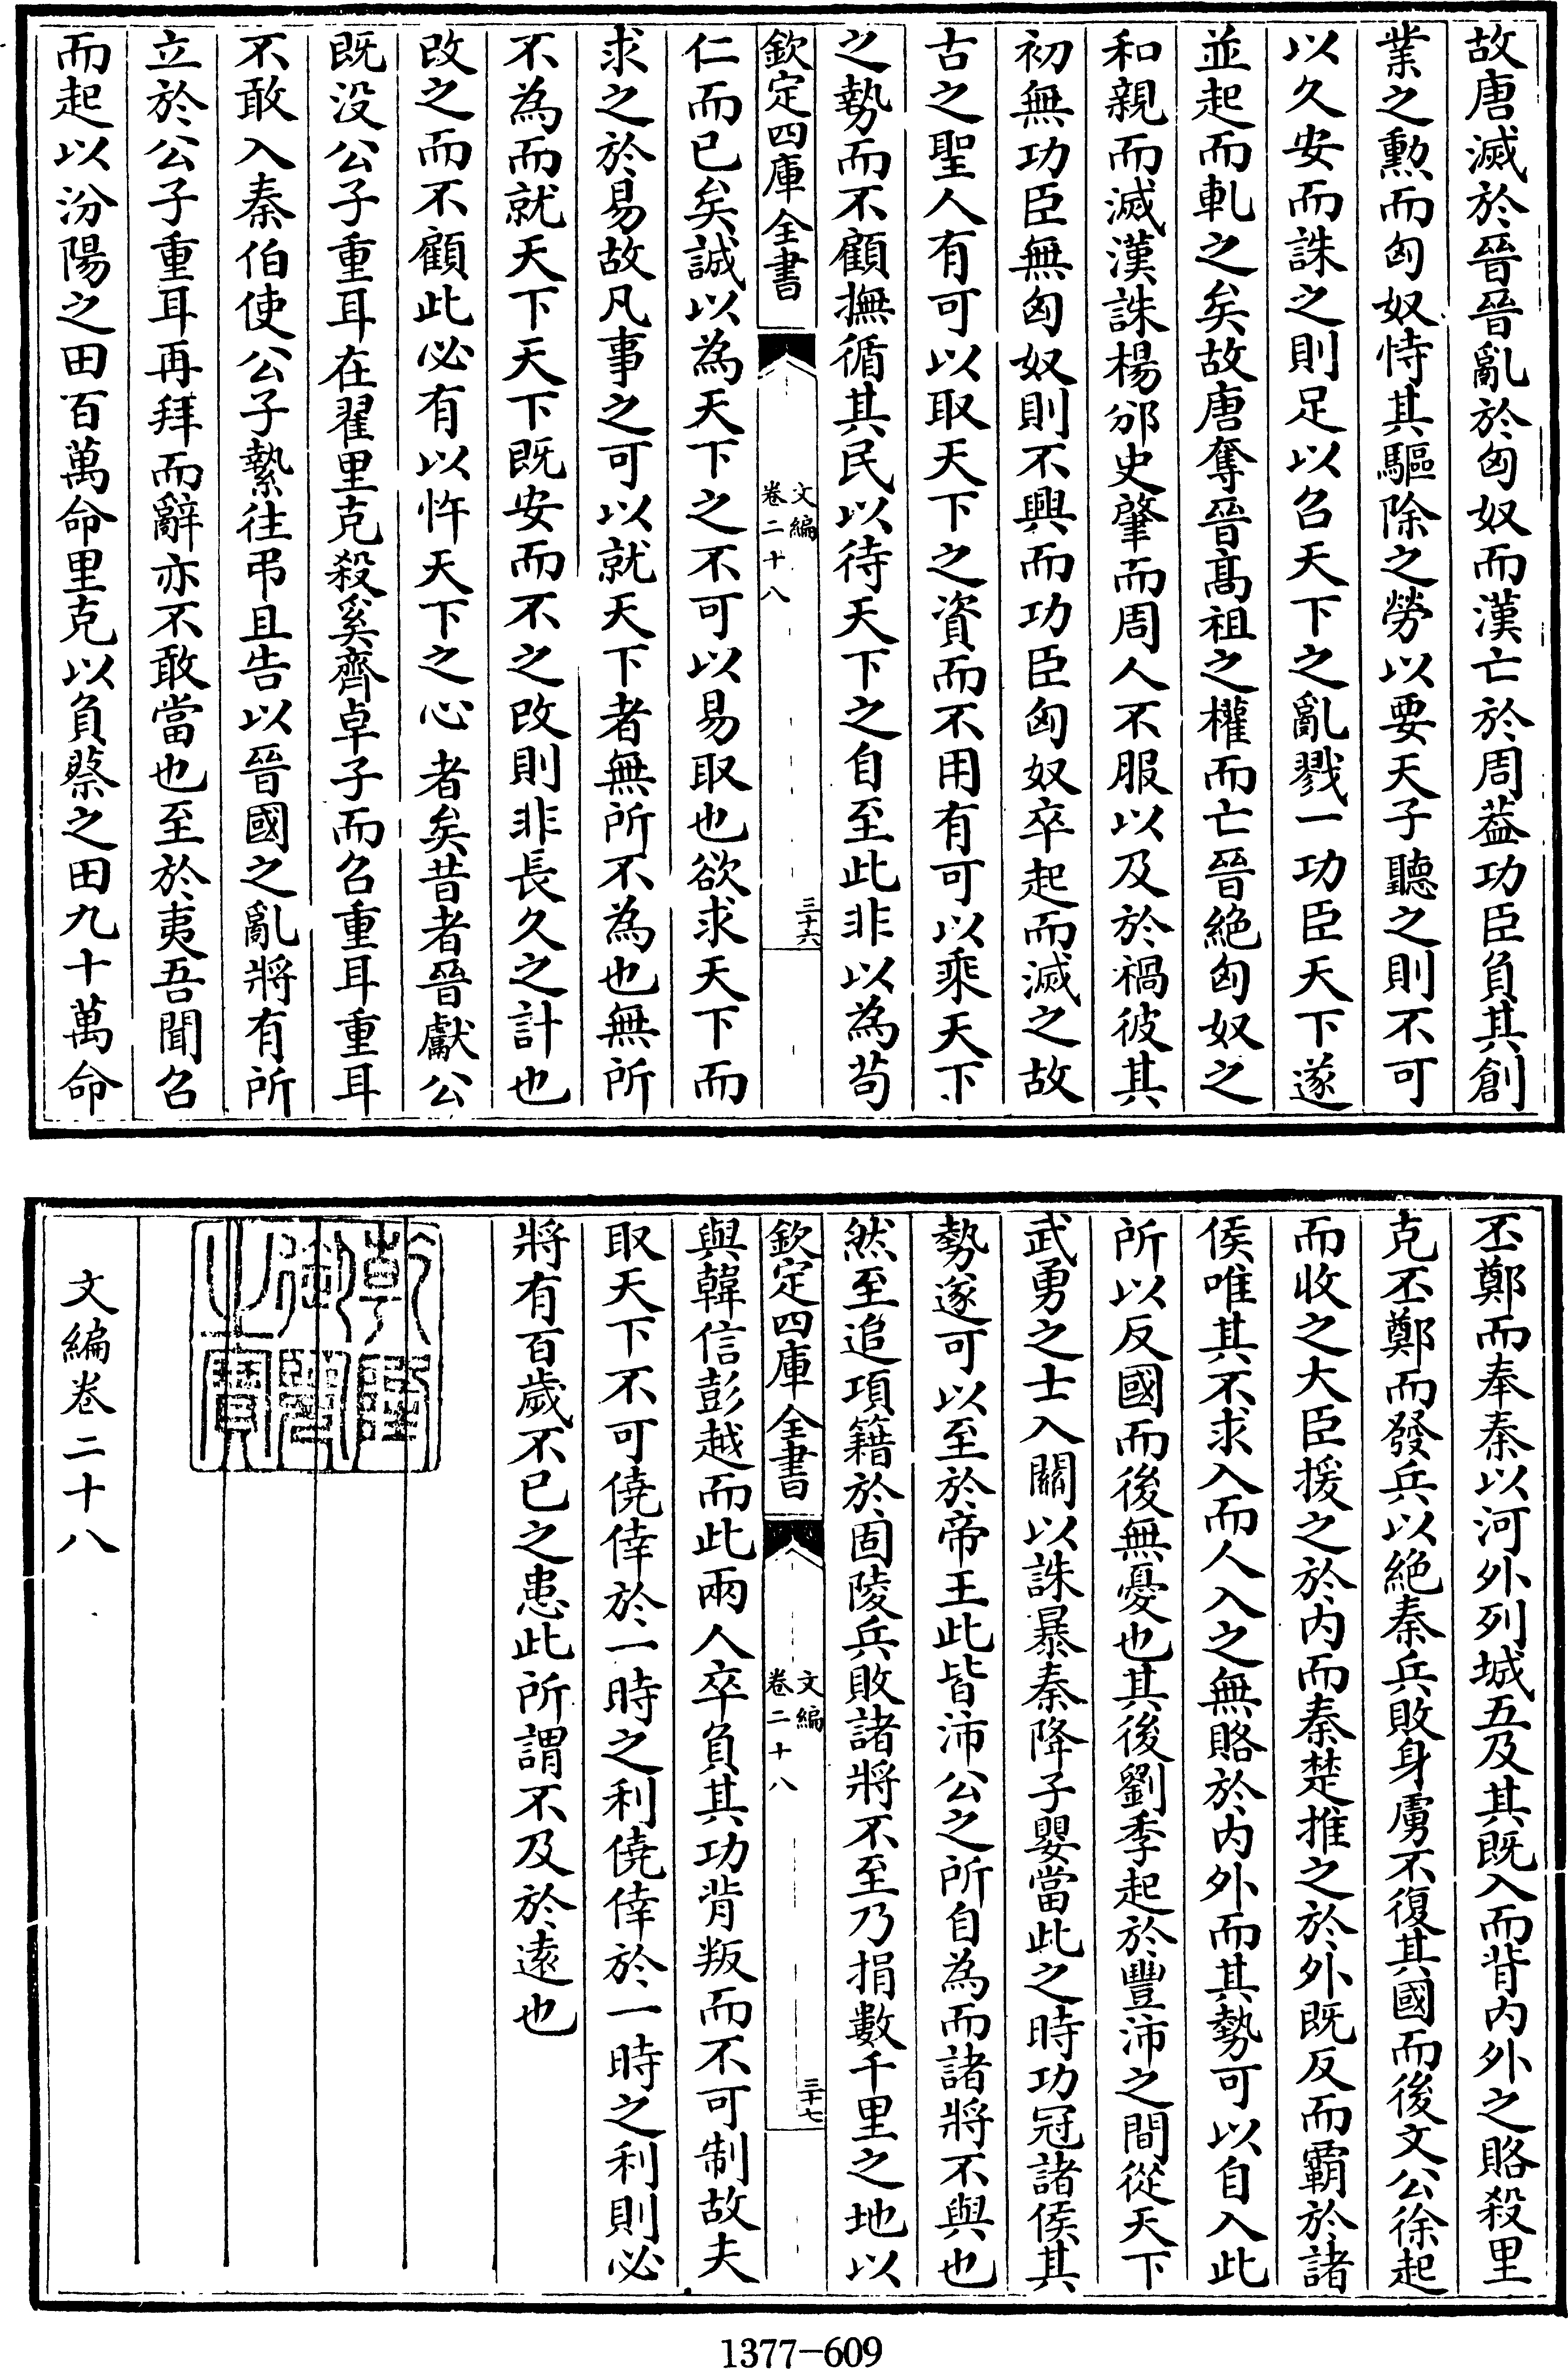 故唐滅於晉晉亂於匈奴而漢亡於周葢功臣負其創
業之勲而匈奴恃其驅除之勞以要天子聽之則不可
以久安而誅之則足以召天下之亂戮一功臣天下遂
並起而軋之矣故唐奪晉髙祖之權而亡晉絶匈奴之
和親而滅漢誅楊邠史肇而周人不服以及於禍彼其
初無功臣無匈奴則不興而功臣匈奴卒起而滅之故
古之聖人有可以取天下之資而不用有可以乘天下
之勢而不顧撫循其民以待天下之自至此非以為苟
欽定四庫全書
文編
卷二十八
三十六
仁而已矣誠以為天下之不可以易取也欲求天下而
求之於易故凡事之可以就天下者無所不為也無所
不為而就天下天下既安而不之改則非長久之計也
改之而不顧此必有以忤天下之心者矣昔者晉獻公
既没公子重耳在翟里克殺奚齊卓子而召重耳重耳
不敢入秦伯使公子縶往弔且告以晉國之亂將有所
立於公子重耳再拜而辭亦不敢當也至於夷吾聞召
而起以汾陽之田百萬命里克以負蔡之田九十萬命
丕鄭而奉秦以河外列城五及其既入而背内外之賂殺里
克丕鄭而發兵以絶秦兵敗身虜不復其國而後文公徐起
而收之大臣援之於内而秦楚推之於外既反而霸於諸
侯唯其不求入而人入之無賂於内外而其勢可以自入此
所以反國而後無憂也其後劉季起於豐沛之間從天下
武勇之士入關以誅暴秦降子嬰當此之時功冠諸侯其
勢遂可以至於帝王此皆沛公之所自為而諸將不與也
然至追項籍於固陵兵敗諸將不至乃捐數千里之地以
欽定四庫全書
文編
卷二十八
三十七
與韓信彭越而此兩人卒負其功背叛而不可制故夫
取天下不可僥倖於一時之利僥倖於一時之利則必
將有百歲不已之患此所謂不及於遠也
乾隆
御覽
之寶
文編卷二十八
1377-609